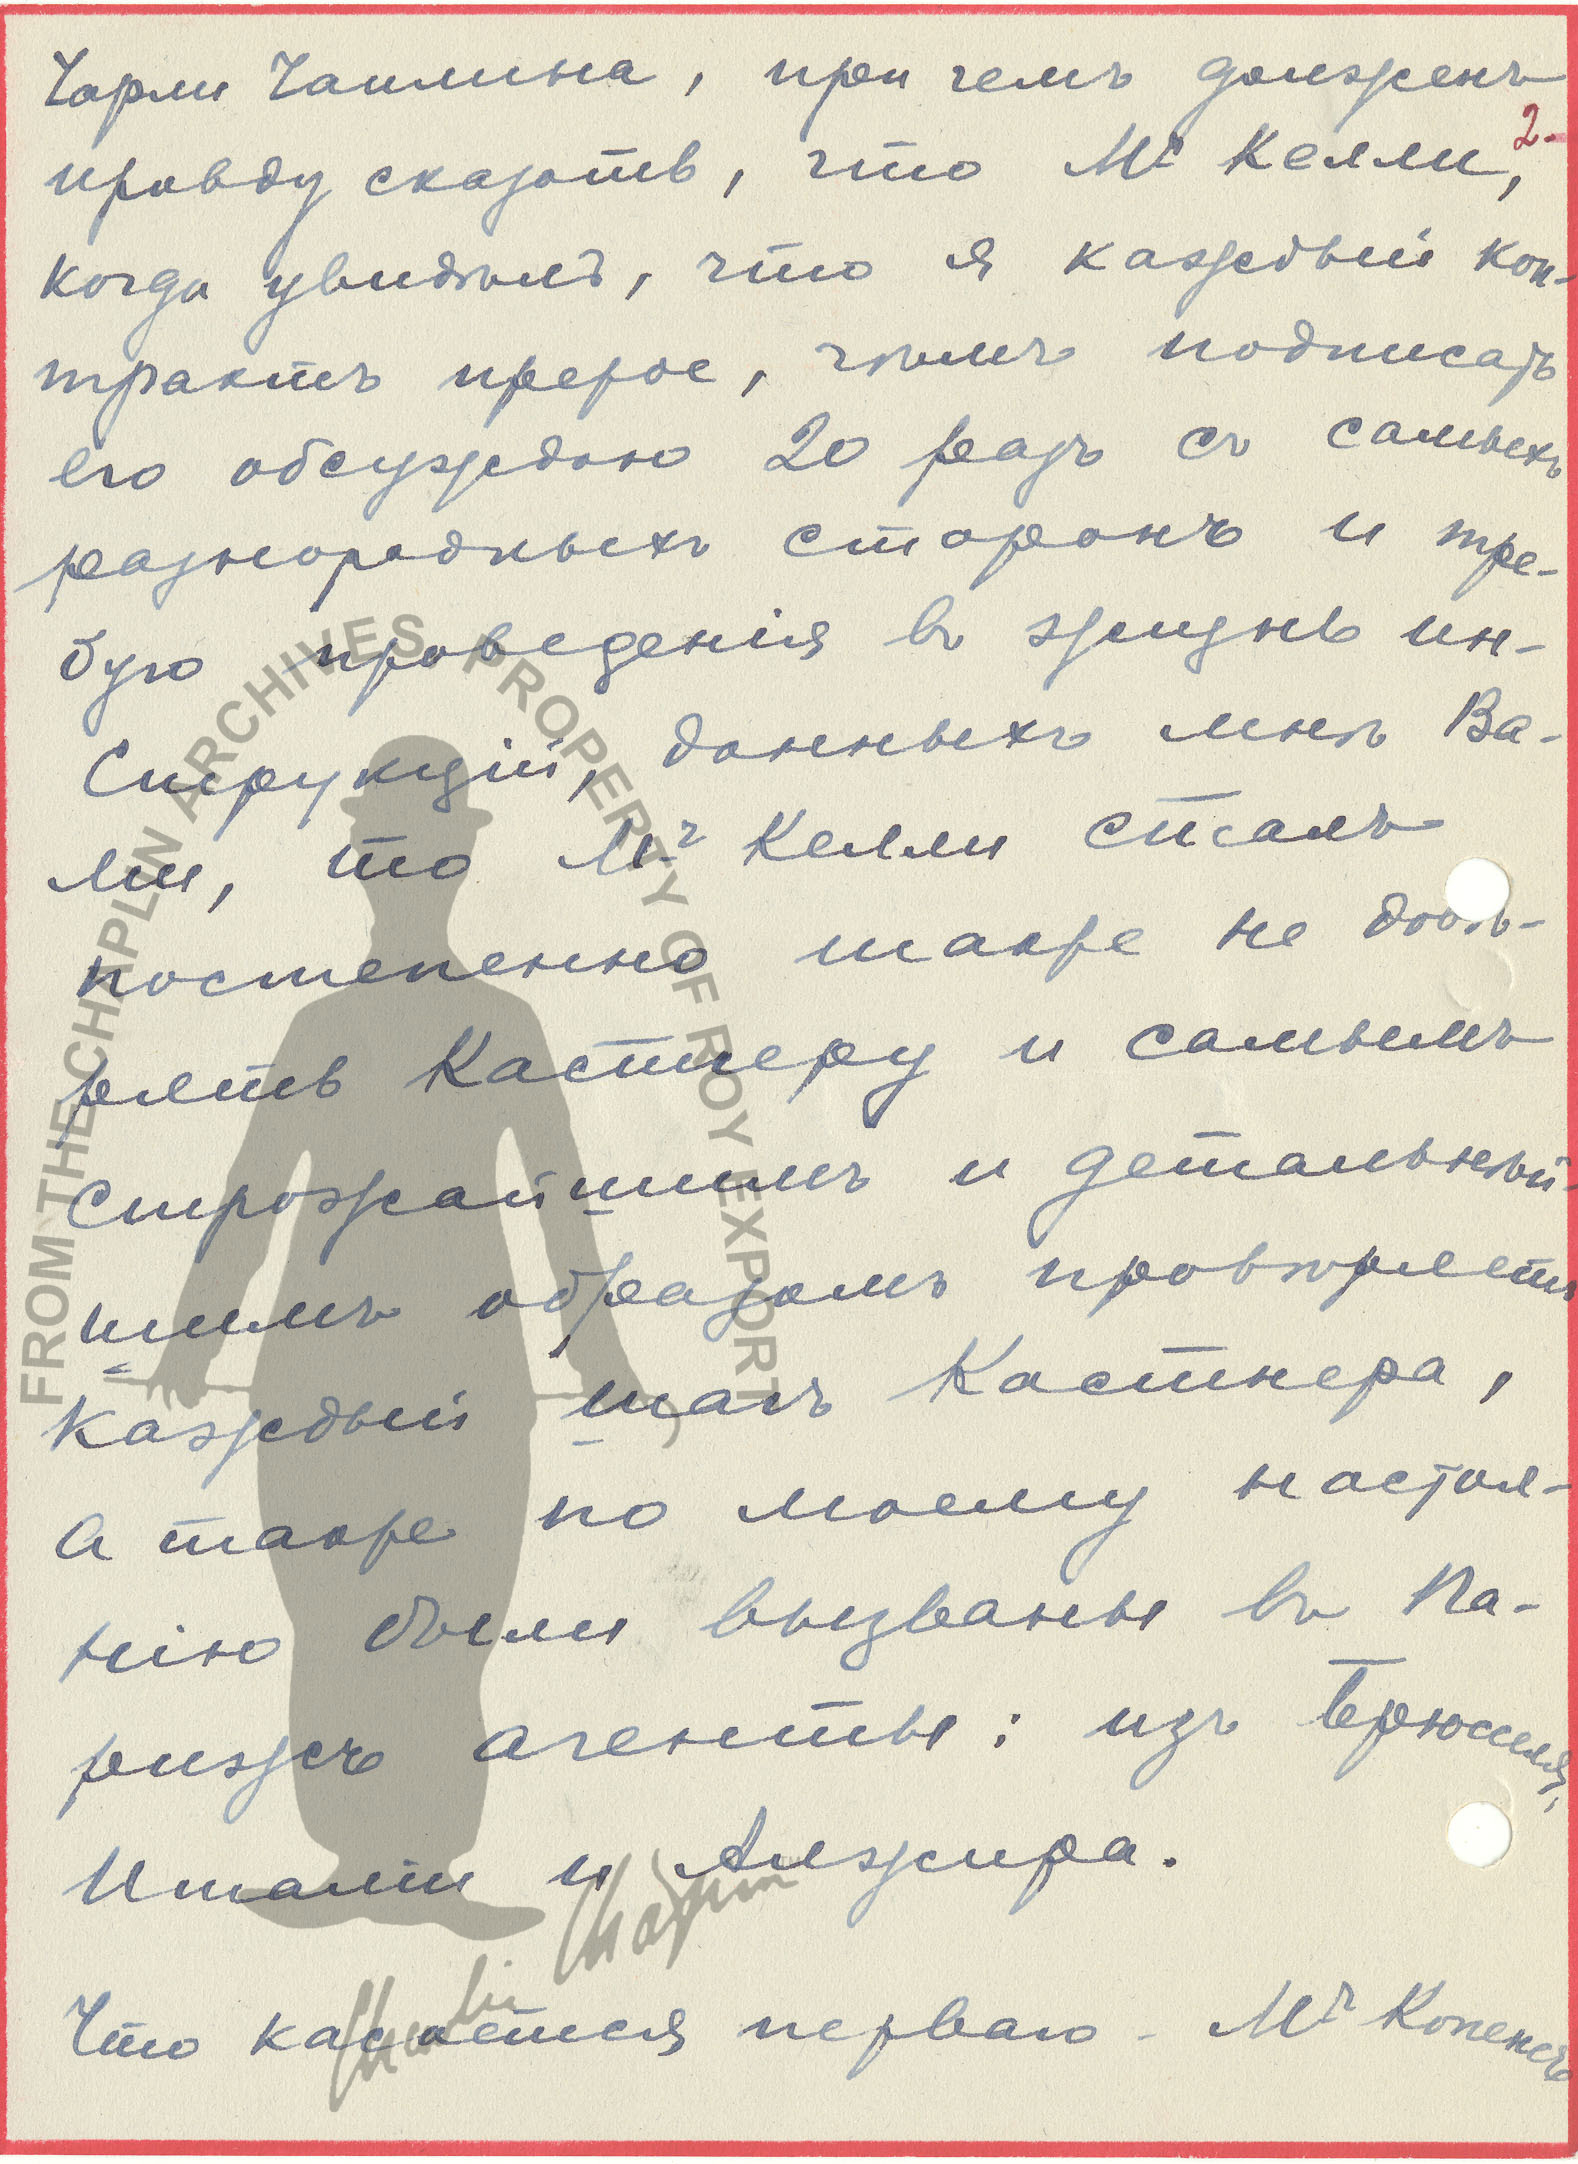 Чарли Чаплина, при чемъ долженъ
2.
правду сказать, что Mr Келли,
когда увидѣлъ, что я каждый кон-
трактъ прежде, чѣмъ подписать
его обсуждаю 20 разъ съ самыхъ
разнородныхъ сторонъ и тре-
бую проведенія въ жизнь ин-
струкцій, данныхъ мнѣ Ва-
ми, то Mr Келли сталъ
постепенно также не довѣ-
рять Кастнеру и самымъ
строжайшимъ и детальнѣй-
шимъ образомъ провѣряетъ
каждый шагъ Кастнера,
а также по моему настоя-
нію были вызваны въ Па-
рижъ агенты: изъ Брюсселя,
Италіи и Алжира.
Что касается перваго - Mr Копенсъ
FROM THE CHAPLIN ARCHIVES. PROPERTY OF ROY EXPORT
Charlie Chaplin